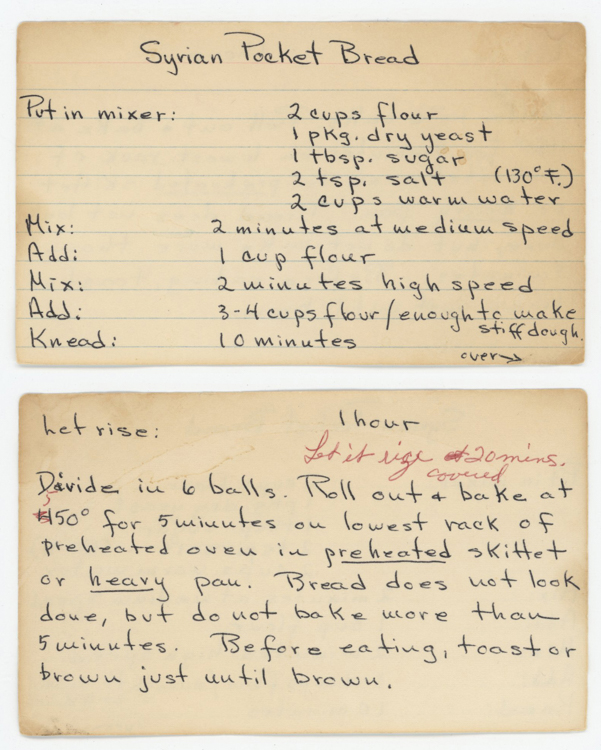 Syrian Pocket Bread
Put in mixer: 2 cups flour
1 pkg. dry yeast
1 tbsp. sugar
2 tsp. salt (130° F.)
2 cups warm water
Mix: 2 minutes at medium speed
Add: 1 cup flour
Mix: 2 minutes high speed
Add: 3-4 cups flour/enough to make
stiff dough.
Knead: 10 minutes
over→
Let rise: 1 hour
Let it rise 20 mins.
covered
Divide in 6 balls. Roll out & bake at
5
450° for 5 minutes on lowest rack of
preheated oven in preheated skillet
or heavy pan. Bread does not look
done, but do not bake more than
5 minutes. Before eating, toast or
brown just until brown.